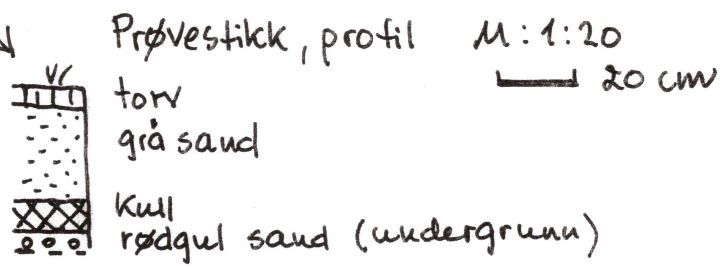 Prøvestikk, profil M:1:20
20 cm
torv
grå sand
Kull
rødgul sand (undergrunn)